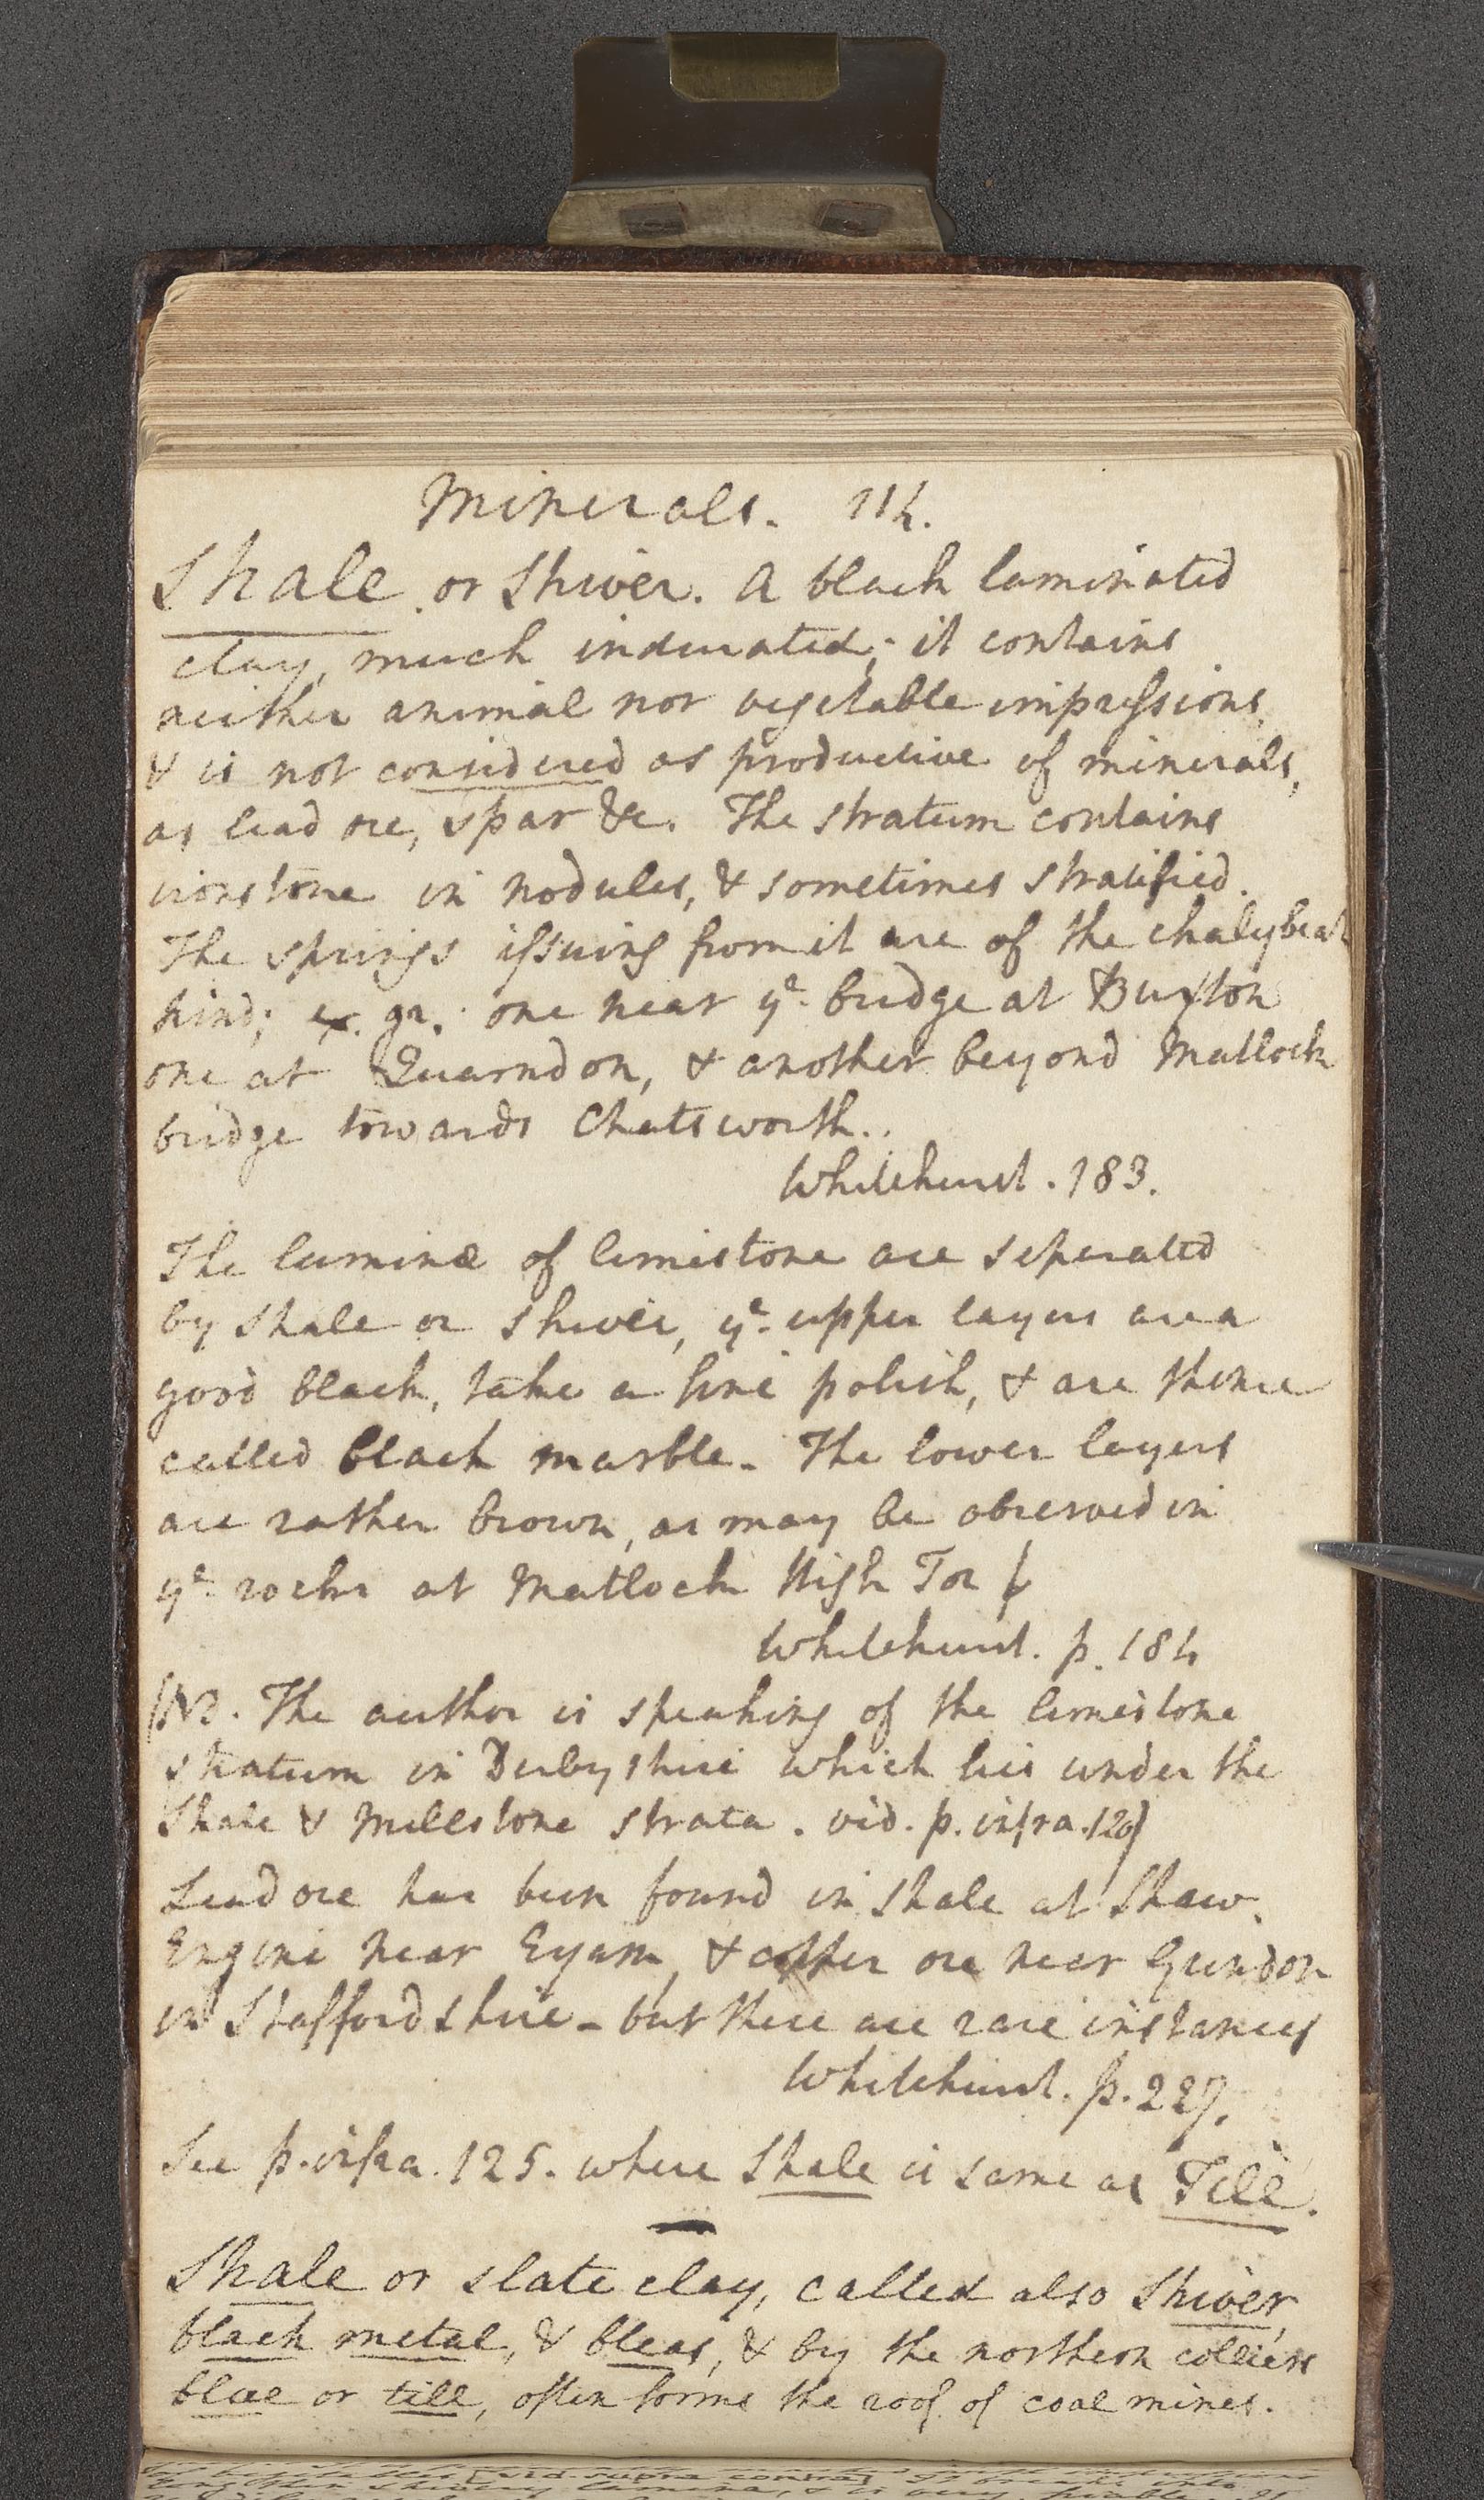 Minerals. 114.
Shale or Shiver. A black laminated
clay, much indurated; it contains
neither animal nor vegetable impressions
& is not considered as productive of minerals,
as lead ore, spar &c. The stratum contains
ironstone in nodules, & sometimes stratified.
The springs issuing from it are of the chalybeat
kind; ex. gr. one near ye. bridge at Buxton
one at Quarndon, & another beyond Matlock
bridge towards Chatsworth..
Whitehurst. 183.
The laminæ of limestone are seperated
by shale or shiver, ye. upper layers are a
good black, take a fine polish, & are thence
called black marble. The lower layers
are rather brown, as may be observed in
ye. rocks at Matlock High Tor
Whitehurst. p. 184
The author is speaking of the limestone
stratum in Derbyshire which lies under the
Shale & Millstone strata. vid. p. infra. 120)
Lead ore has been found in shale at Shaw.
Engine near Eyam, & copper ore near Gundon
in Staffordshire - but these are rare instances
Whitehurst. p. 227.
See p. infra. 125. where Shale is same as Till.
Shale or slate clay, called also Shiver,
black metal, & bleas, & by the northern colliers
blue or till, often forms the roof of coal mines.